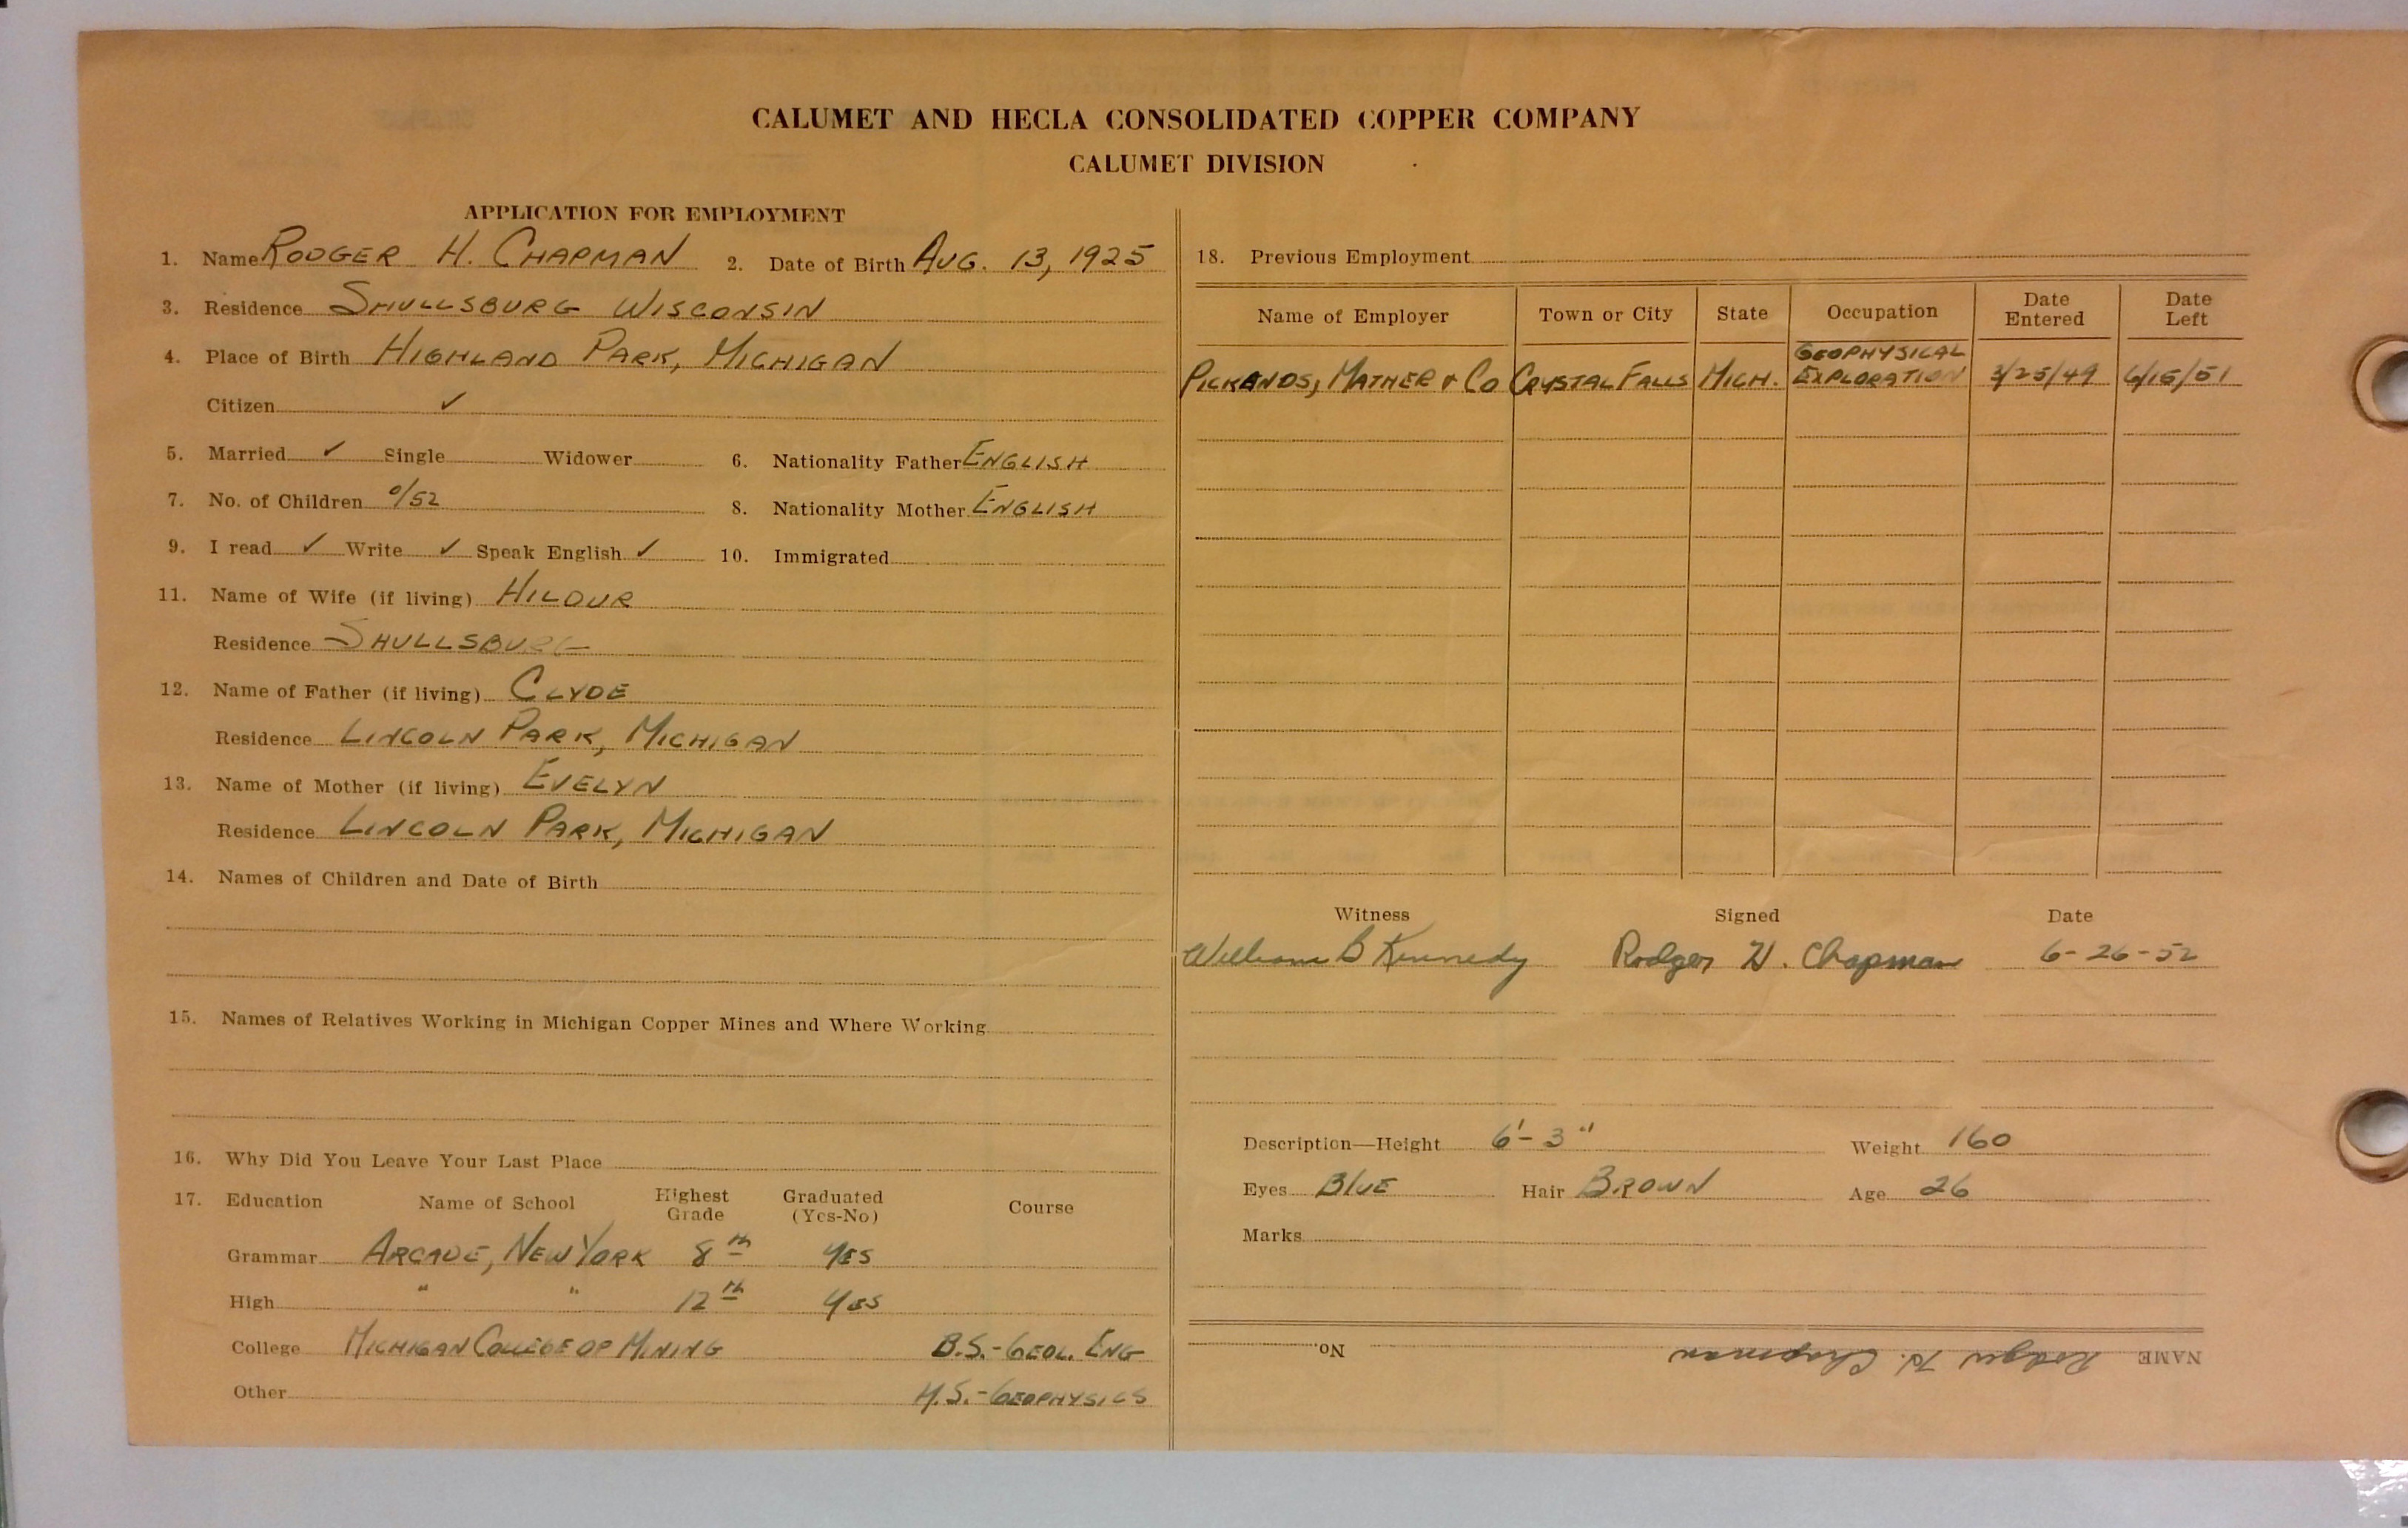 CALUMET AND HECLA CONSOLIDATED COPPER COMPANY
CALUMET DIVISION
APPLICATION FOR EMPLOYMENT
1. Name RODGER H. CHAPMAN 2. Date of Birth AUG. 13, 1925
3. Residence SHULLSBURG WISCONSIN
4. Place of Birth HIGHLAND PARK, MICHIGAN
Citizen ✓
5. Married ✓ Single Widower 6. Nationality Father ENGLISH
7. No. of Children 0/52 8. Nationality Mother ENGLISH
9. I read ✓ Write ✓ Speak English ✓ 10. Immigrated
11. Name of Wife (if living) HILDUR
Residence SHULLSBURG
12. Name of Father (if living) CLYDE
Residence LINCOLN PARK, MICHIGAN
13. Name of Mother (if living) EVELYN
Residence LINCOLN PARK, MICHIGAN
14. Names of Children and Date of Birth
15. Names of Relatives Working in Michigan Copper Mines and Where Working
16. Why Did You Leave Your Last Place
17. Education Name of School Highest Grade Graduated (Yes-No) Course
Grammar ARCADE, NEW YORK 8th YES
High " " 12th YES
College MICHIGAN COLLEGE OF MINING B.S.-GEOL. ENG
Other M.S.-GEOPHYSICS
18. Previous Employment
Name of Employer Town or City State Occupation Date Entered Date Left
PICKANDS, MATHER & CO CRYSTAL FALLS MICH. GEOPHYSICAL EXPLORATION 3/25/49 6/15/51
Witness Signed Date
William B Kennedy Rodger H. Chapman 6-26-52
Description—Height 6'-3" Weight 160
Eyes BLUE Hair BROWN Age 26
Marks
NAME Rodger H. Chapman No.